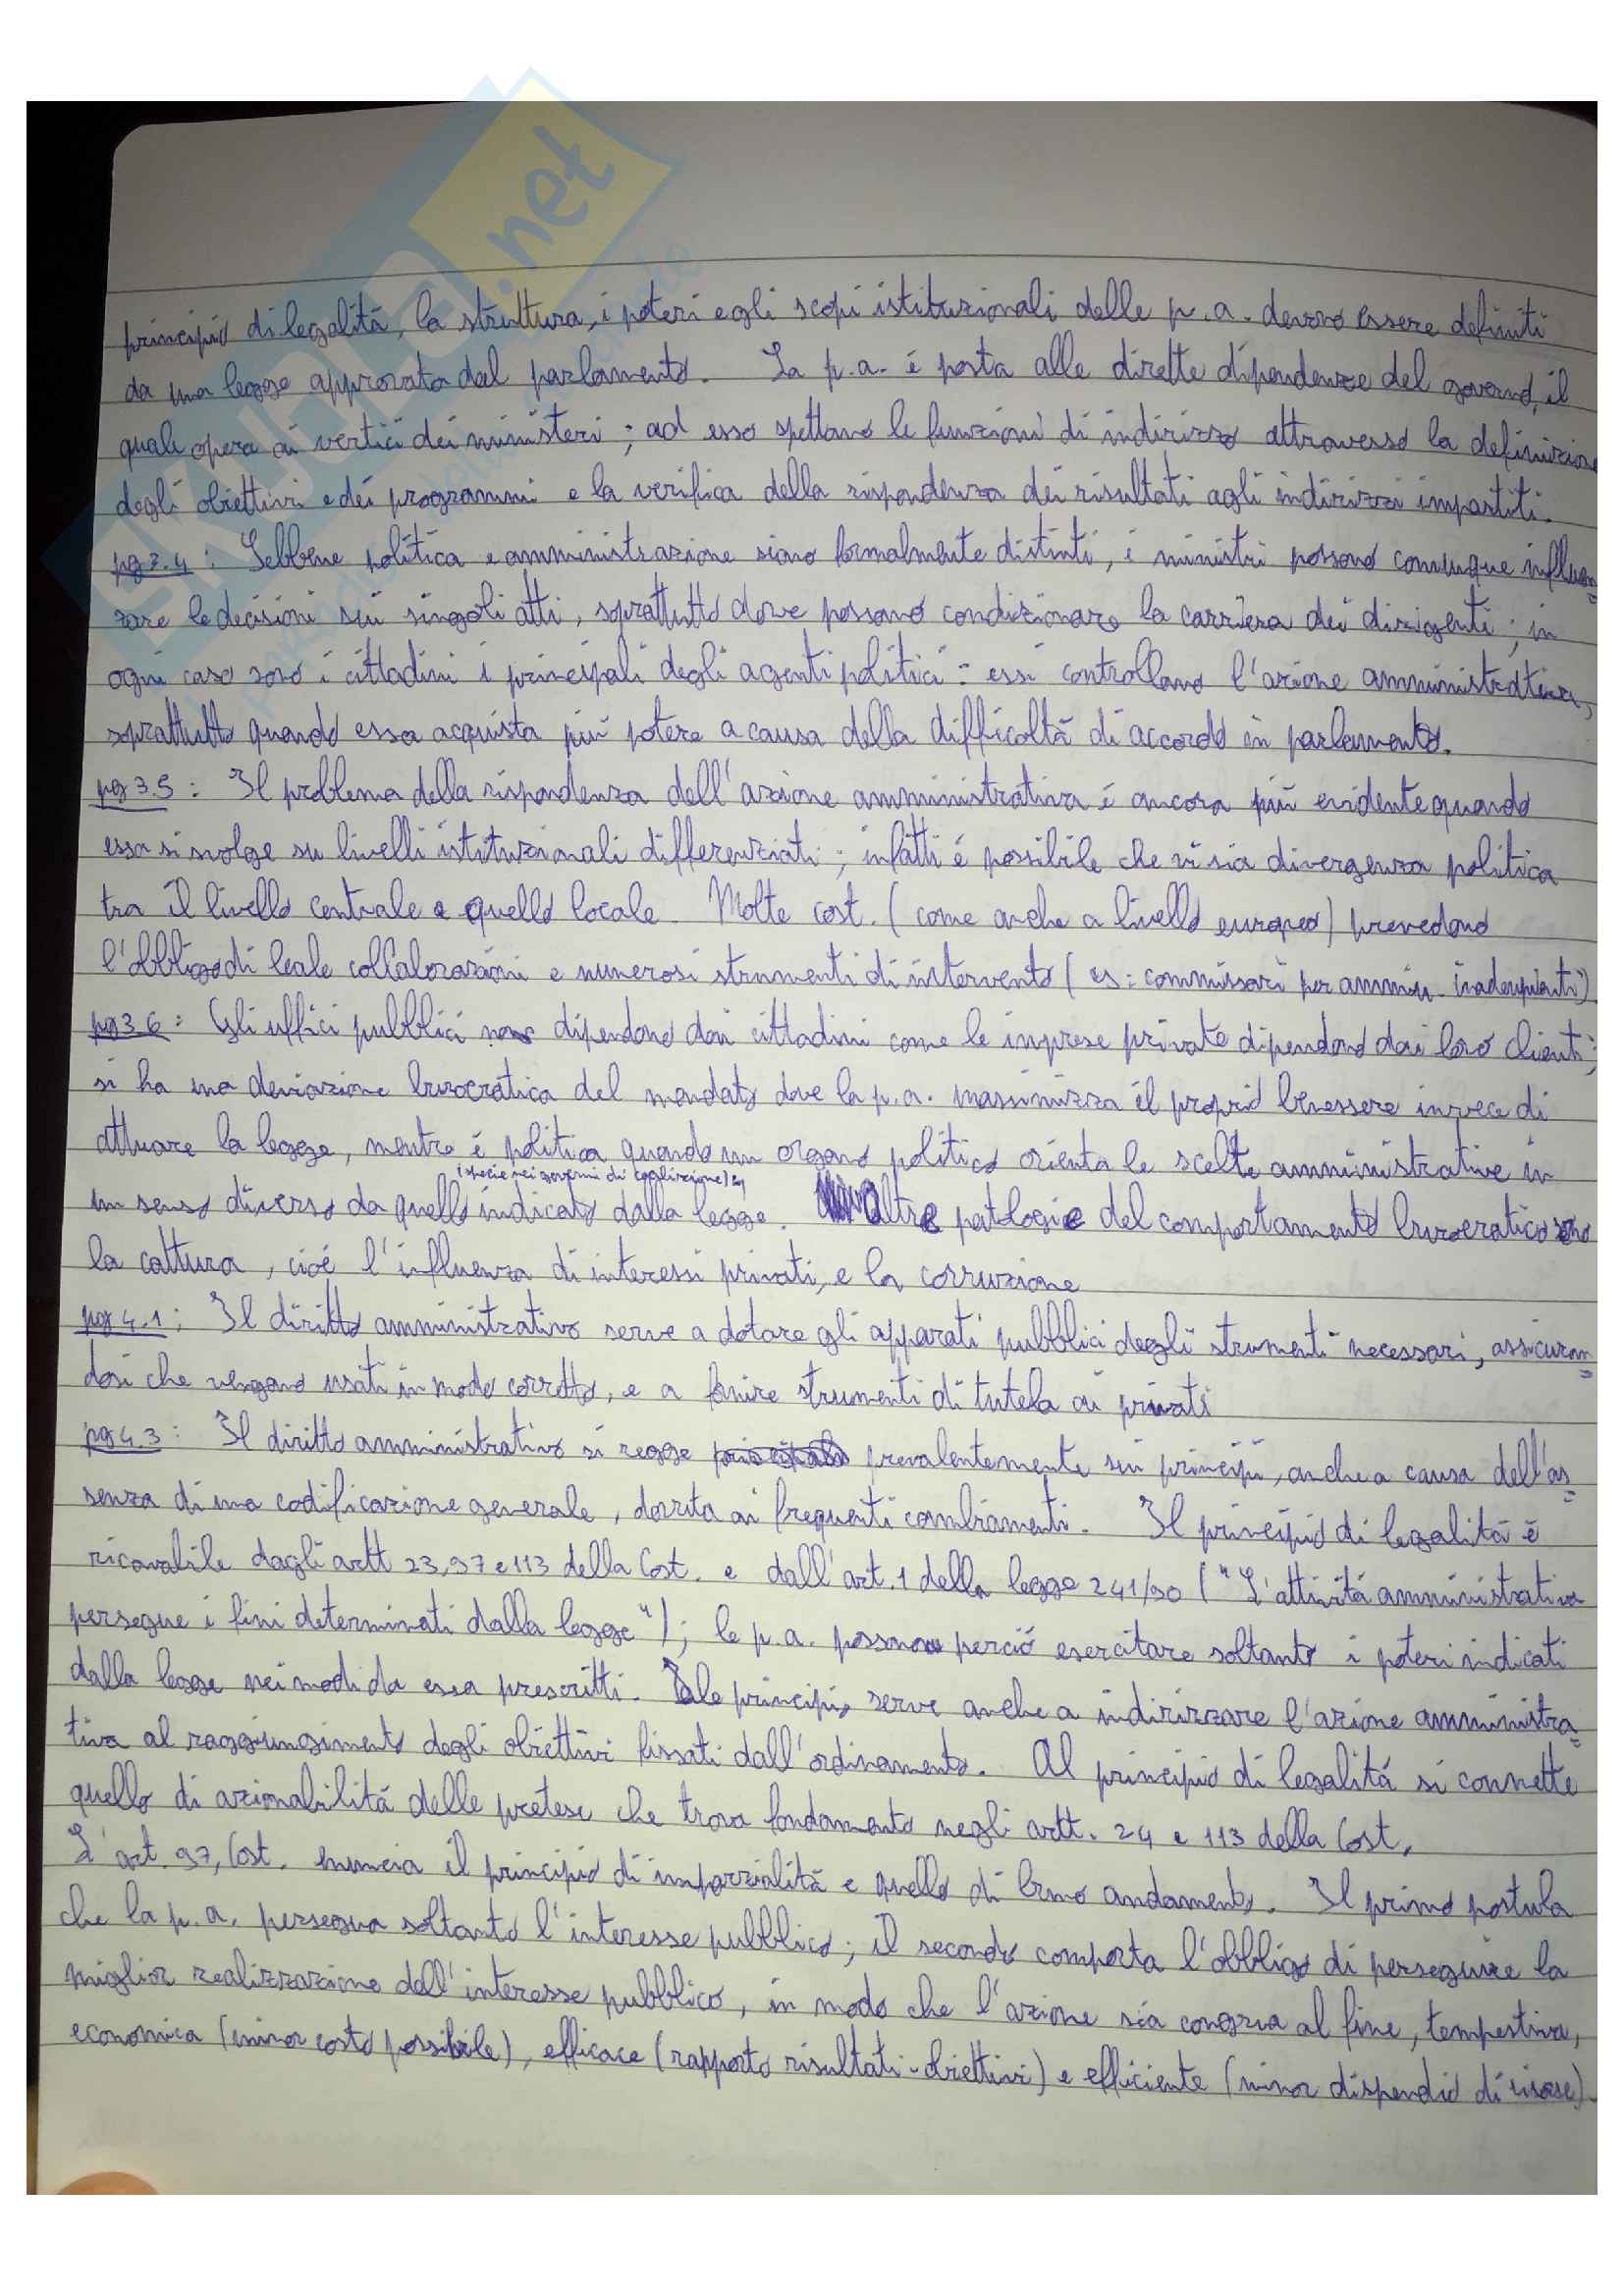 principio di legalità, la struttura, i poteri e gli scopi istituzionali delle p.a. devono essere definiti
da una legge approvata dal parlamento. La p.a. é posta alle dirette dipendenze del governo, il
quale opera ai vertici dei ministeri; ad esso spettano le funzioni di indirizzo attraverso la definizione
degli obiettivi e dei programmi e la verifica della rispondenza dei risultati agli indirizzi impartiti.
pg 3.4: Sebbene politica e amministrazione siano formalmente distinti, i ministri possono comunque influen=
zare le decisioni sui singoli atti, soprattutto dove possono condizionare la carriera dei dirigenti; in
ogni caso sono i cittadini i principali degli agenti politici: essi controllano l'azione amministrativa,
soprattutto quando essa acquista più potere a causa della difficoltà di accordo in parlamento.
pg 3.5: Il problema della rispondenza dell'azione amministrativa é ancora più evidente quando
essa si svolge su livelli istituzionali differenziati; infatti é possibile che vi sia divergenza politica
tra il livello centrale e quello locale. Molte cost. (come anche a livello europeo) prevedono
l'obbligo di leale collaborazioni e numerosi strumenti di intervento (es: commissari per ammin. inadempienti)
pg 3.6: Gli uffici pubblici non dipendono dai cittadini come le imprese private dipendono dai loro clienti;
si ha una deviazione burocratica del mandato dove la p.a. massimizza il proprio benessere invece di
attuare la legge, mentre é politica quando un organo politico orienta le scelte amministrative in
(specie nei governi di coalizione)
un senso diverso da quello indicato dalla legge. Altre patologie del comportamento burocratico sono
la cattura, cioé l'influenza di interessi privati, e la corruzione
pg 4.1: Il diritto amministrativo serve a dotare gli apparati pubblici degli strumenti necessari, assicuran=
dosi che vengano usati in modo corretto, e a fornire strumenti di tutela ai privati
pg 4.3: Il diritto amministrativo si regge prevalentemente sui principi, anche a causa dell'as=
senza di una codificazione generale, dovuta ai frequenti cambiamenti. Il principio di legalità é
ricavabile dagli artt 23, 97 e 113 della Cost. e dall'art. 1 della legge 241/90 ("L'attività amministrativa
persegue i fini determinati dalla legge"); le p.a. possono perció esercitare soltanto i poteri indicati
dalla legge nei modi da essa prescritti. Tale principio serve anche a indirizzare l'azione amministra=
tiva al raggiungimento degli obiettivi fissati dall'ordinamento. Al principio di legalità si connette
quello di azionabilità delle pretese che trova fondamento negli artt. 24 e 113 della Cost.
L'art. 97, Cost. enuncia il principio di imparzialità e quello di buno andamento. Il primo postula
che la p.a. persegua soltanto l'interesse pubblico; il secondo comporta l'obbligo di perseguire la
miglior realizzazione dell'interesse pubblico, in modo che l'azione sia congrua al fine, tempestiva,
economica (minor costo possibile), efficace (rapporto risultati-obiettivi) e efficiente (minor dispendio di risorse).
.net